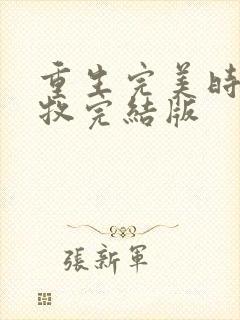 重生完美時
牧完結版
張新軍